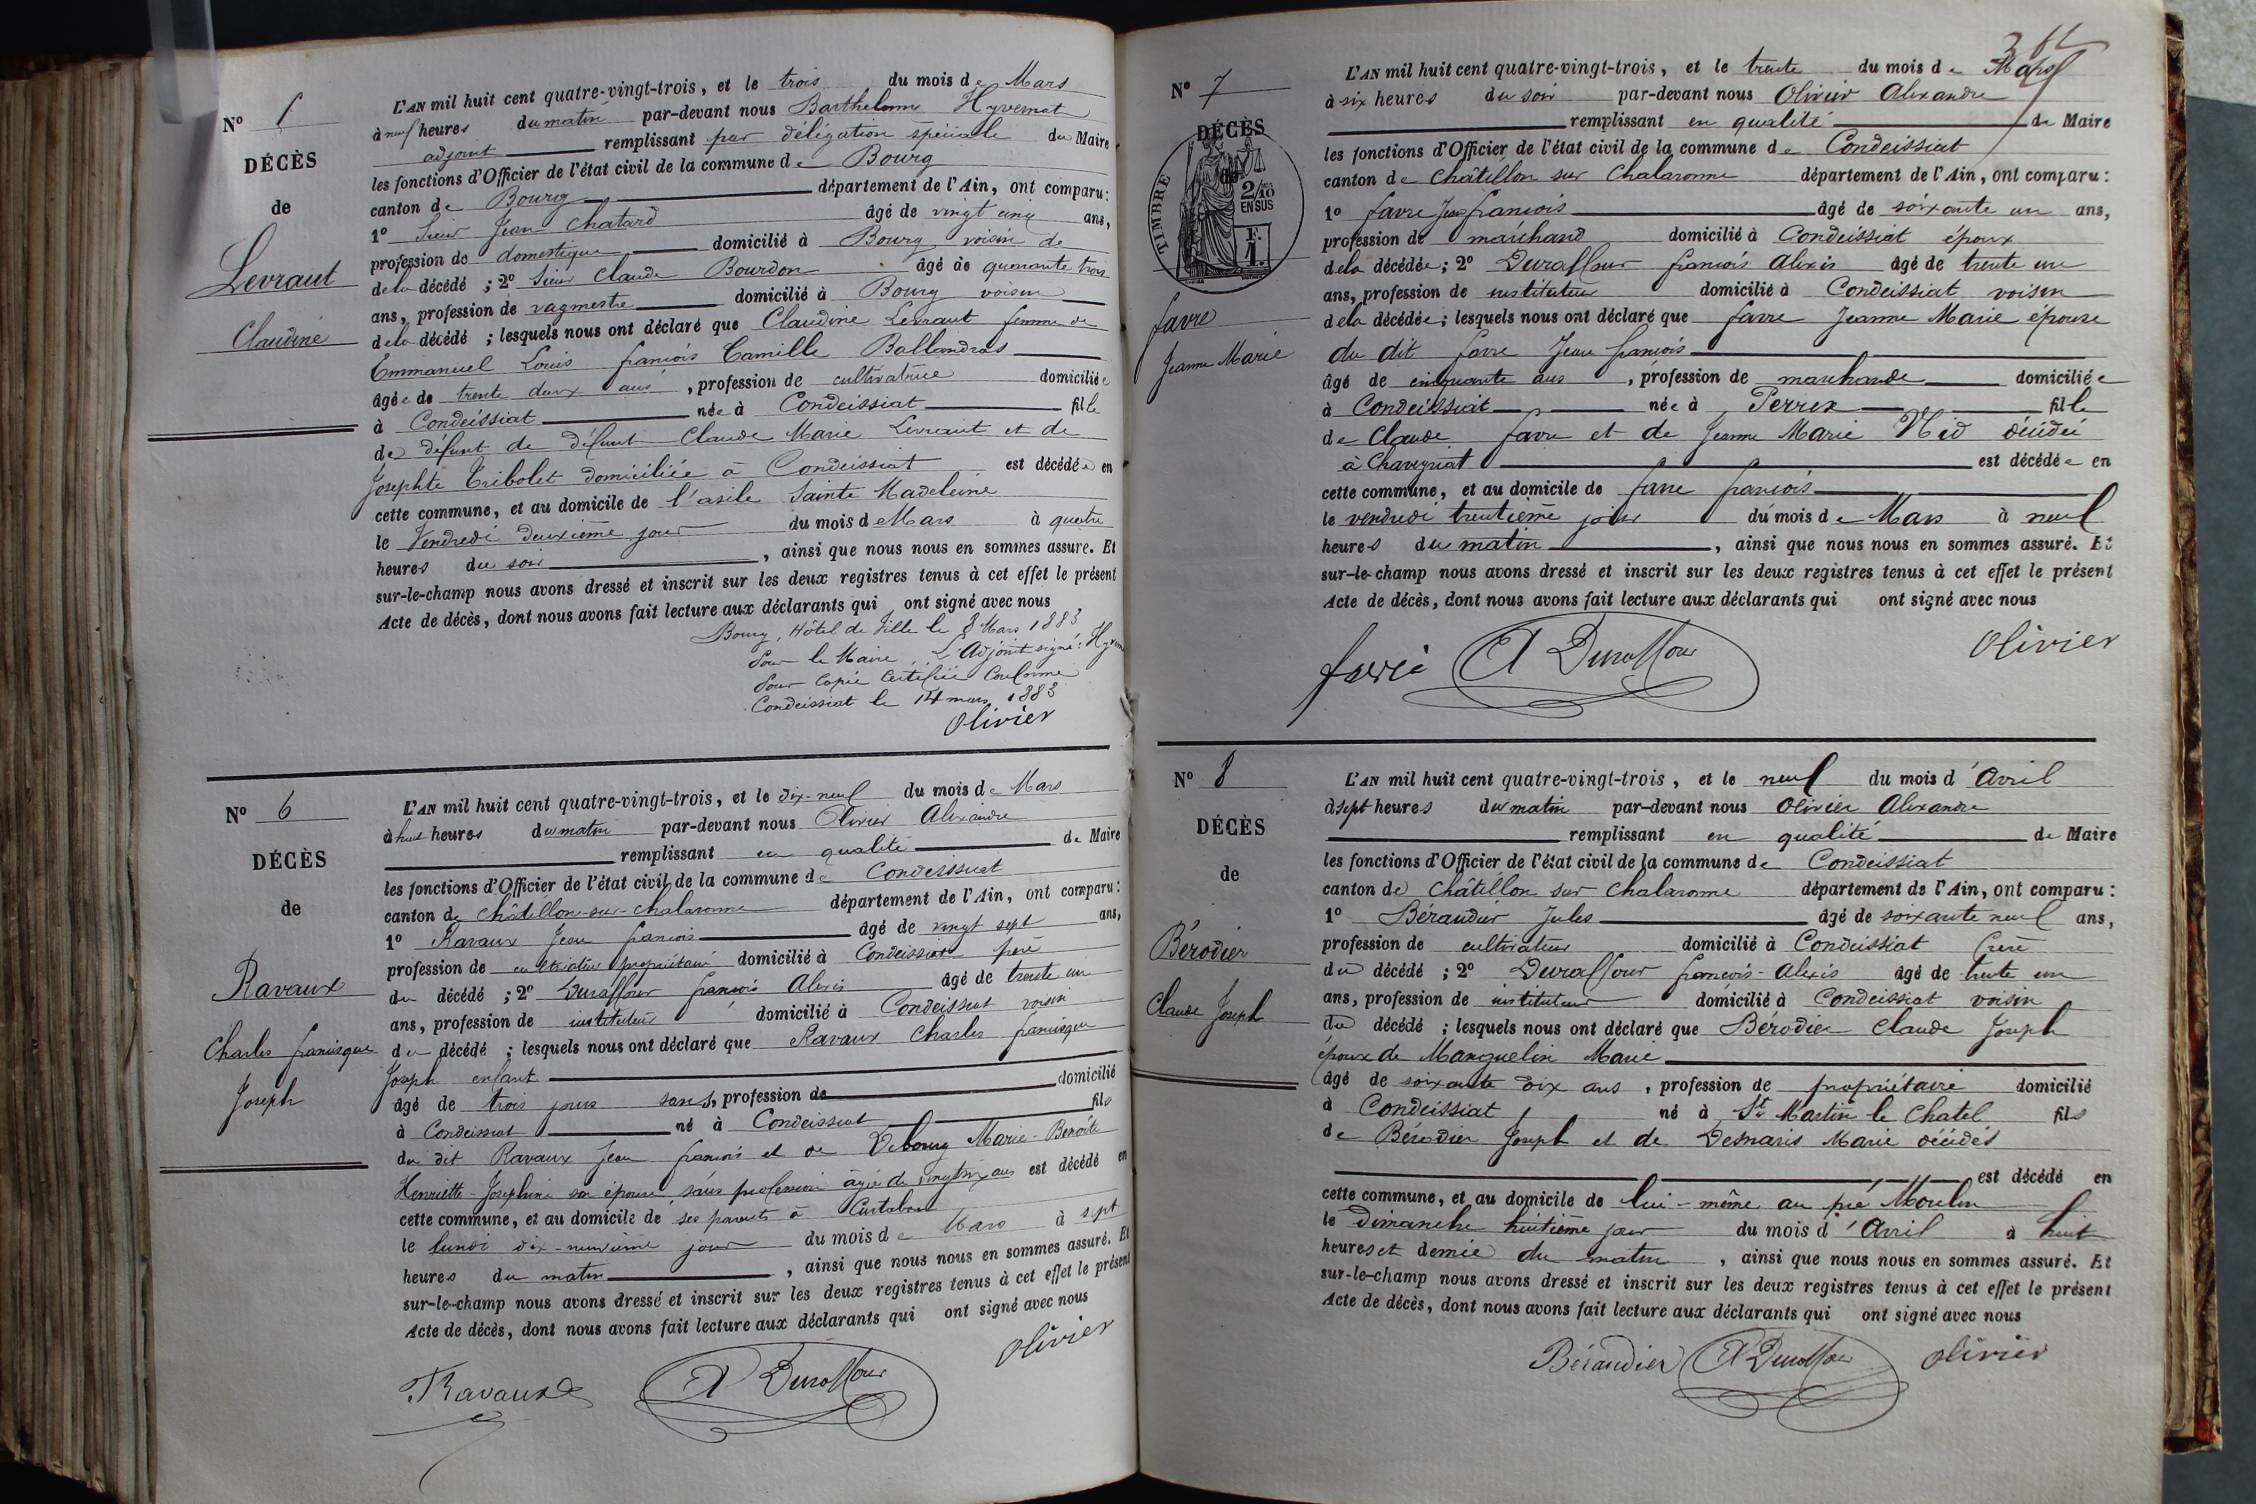 N° 5
DÉCÈS
de
Levraut
Claudine
L'AN mil huit cent quatre-vingt-trois, et le trois du mois de Mars
à neuf heures du matin par-devant nous Barthelemy Hyvernat
adjoint remplissant par délégation spéciale du Maire
les fonctions d'Officier de l'état civil de la commune de Bourg
canton de Bourg département de l'Ain, ont comparu :
1° Sieur Jean Chatard âgé de vingt cinq ans,
profession de domestique domicilié à Bourg voisin de
de la décédé ; 2° Sieur Claude Bourdon âgé de quarante trois
ans, profession de vagmestre domicilié à Bourg voisin
de la décédé ; lesquels nous ont déclaré que Claudine Levraut femme de
Emmanuel Louis françois Camille Ballandras
âgée de trente deux ans, profession de cultivatrice domiciliée
à Condeissiat née à Condeissiat fille
de défunt de défunt Claude Marie Levraut et de
Josephte Tribolet domiciliée à Condeissiat est décédée en
cette commune, et au domicile de l'asile Sainte Madeleine
le Vendredi deuxième jour du mois de Mars à quatre
heures du soir, ainsi que nous nous en sommes assuré. Et
sur-le-champ nous avons dressé et inscrit sur les deux registres tenus à cet effet le présent
Acte de décès, dont nous avons fait lecture aux déclarants qui ont signé avec nous
Bourg, Hôtel de Ville le 8 Mars 1883
Pour le Maire, L'Adjoint signé : Hyvern
Pour Copie Certifiée Conforme
Condeissiat le 14 mars 1883
Olivier
N° 6
DÉCÈS
de
Ravaux
Charles francisque
Joseph
L'AN mil huit cent quatre-vingt-trois, et le dix-neuf du mois de Mars
à huit heures du matin par-devant nous Olivier Alexandre
remplissant en qualité de Maire
les fonctions d'Officier de l'état civil de la commune de Condeissiat
canton de Châtillon-sur-Chalaronne département de l'Ain, ont comparu :
1° Ravaux Jean françois âgé de vingt sept ans,
profession de cultivateur propriétaire domicilié à Condeissiat père
du décédé ; 2° Duraffour françois Alexis âgé de trente un
ans, profession de instituteur domicilié à Condeissiat voisin
du décédé ; lesquels nous ont déclaré que Ravaux Charles francisque
Joseph enfant
âgé de trois jours sans, profession de domicilié
à Condeissiat né à Condeissiat fils
du dit Ravaux Jean françois et de Debourg Marie-Benoîte
Henriette-Joséphine son épouse sans profession âgée de ans est décédé en
cette commune, et au domicile de ses parents à
le lundi dix-neuvième jour du mois de Mars à sept
heures du matin, ainsi que nous nous en sommes assuré. Et
sur-le-champ nous avons dressé et inscrit sur les deux registres tenus à cet effet le présent
Acte de décès, dont nous avons fait lecture aux déclarants qui ont signé avec nous
Ravaux A Duraffour Olivier
N° 7
DÉCÈS
de
TIMBRE
2/10 EN SUS
F. 1.
favre
Jeanne Marie
L'AN mil huit cent quatre-vingt-trois, et le trente du mois de Mars
à six heures du soir par-devant nous Olivier Alexandre
remplissant en qualité de Maire
les fonctions d'Officier de l'état civil de la commune de Condeissiat
canton de Châtillon sur Chalaronne département de l'Ain, ont comparu :
1° favre Jean françois âgé de soixante un ans,
profession de marchand domicilié à Condeissiat époux
de la décédée ; 2° Duraffour françois Alexis âgé de trente un
ans, profession de instituteur domicilié à Condeissiat voisin
de la décédée ; lesquels nous ont déclaré que favre Jeanne Marie épouse
du dit favre Jean françois
âgé de cinquante ans, profession de marchande domiciliée
à Condeissiat née à Perrex fille
de Claude favre et de Jeanne Marie décédés
à Chaveyriat est décédée en
cette commune, et au domicile de favre françois
le vendredi trentième jour du mois de Mars à neuf
heures du matin, ainsi que nous nous en sommes assuré. Et
sur-le-champ nous avons dressé et inscrit sur les deux registres tenus à cet effet le présent
Acte de décès, dont nous avons fait lecture aux déclarants qui ont signé avec nous
favre A Duraffour Olivier
N° 8
DÉCÈS
de
Bérodier
Claude Joseph
L'AN mil huit cent quatre-vingt-trois, et le neuf du mois d'Avril
à sept heures du matin par-devant nous Olivier Alexandre
remplissant en qualité de Maire
les fonctions d'Officier de l'état civil de la commune de Condeissiat
canton de Châtillon sur Chalaronne département de l'Ain, ont comparu :
1° Béraudier Jules âgé de soixante neuf ans,
profession de cultivateur domicilié à Condeissiat frère
du décédé ; 2° Duraffour françois-Alexis âgé de trente un
ans, profession de instituteur domicilié à Condeissiat voisin
du décédé ; lesquels nous ont déclaré que Bérodier Claude Joseph
époux de Manguelin Marie
âgé de soixante dix ans, profession de propriétaire domicilié
à Condeissiat né à St Martin le Chatel fils
de Bérodier Joseph et de Desmaris Marie décédés
est décédé en
cette commune, et au domicile de lui-même au pré Moulin
le Dimanche huitième jour du mois d'Avril à huit
heures et demie du matin, ainsi que nous nous en sommes assuré. Et
sur-le-champ nous avons dressé et inscrit sur les deux registres tenus à cet effet le présent
Acte de décès, dont nous avons fait lecture aux déclarants qui ont signé avec nous
Béraudier A Duraffour Olivier